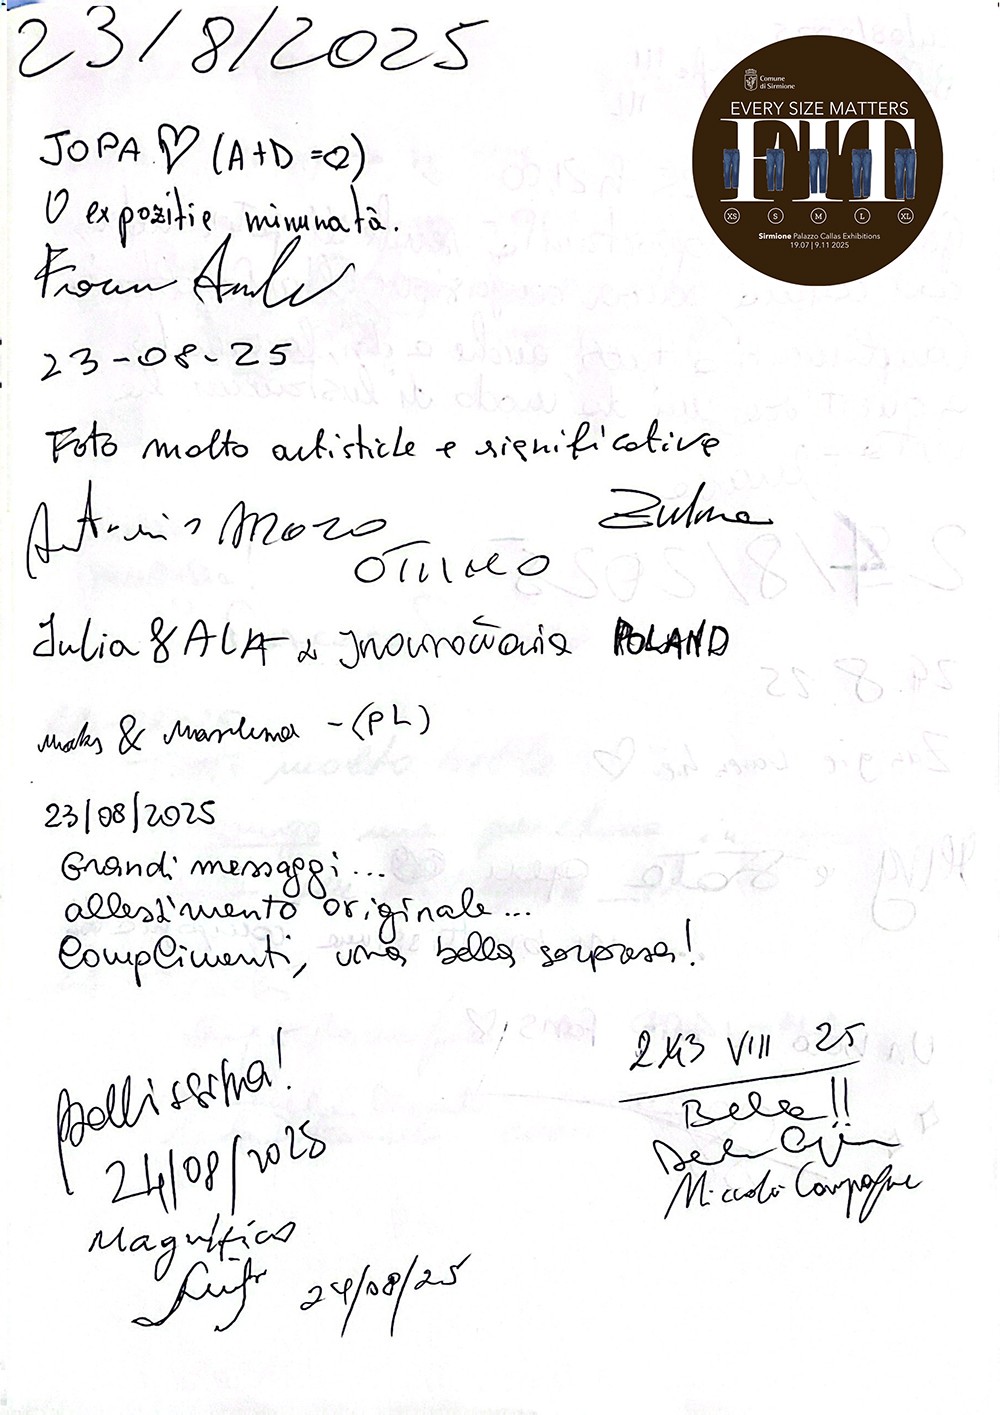 23/8/2025
Comune
di Sirmione
EVERY SIZE MATTERS
FIT
XS S M L XL
Sirmione Palazzo Callas Exhibitions
19.07 | 9.11 2025
JOPA ♡ (A+D =
O expoziție minunată.
23-08-25
Foto molto artistiche e significative
Zulma
OTTIMO
Julia & ALA z Inowrocławia POLAND
Maks & Marlena - (PL)
23/08/2025
Grandi messaggi...
allestimento originale...
Complimenti, una bella sorpresa!
Bellissima!
24/08/2025
Magnifico
24/08/25
VIII 25
Bella!!